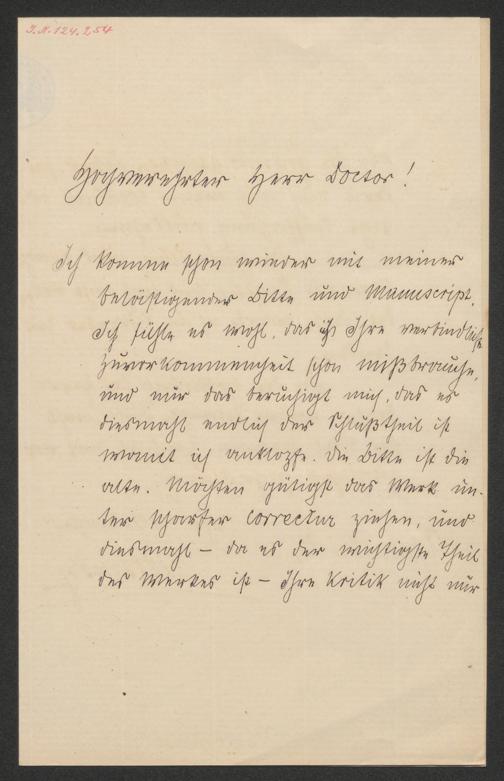 I.N. 124.254
Hochverehrter Herr Doctor!
Ich komme schon wieder mit meiner
belästigenden Bitte und Manuscript.
Ich fühle es wohl, das ich Ihre verbindliche
Zuvorkommenheit schon mißbrauche,
und nur das beruhigt mich, das es
diesmahl endlich der Schlußtheil ist
womit ich anklopfe. Die Bitte ist die
alte. Möchten gütigst das Werk un-
ter scharfer Correctur ziehen, und
diesmahl – da es der wichtigste Theil
des Werkes ist – Ihre Kritik nicht nur